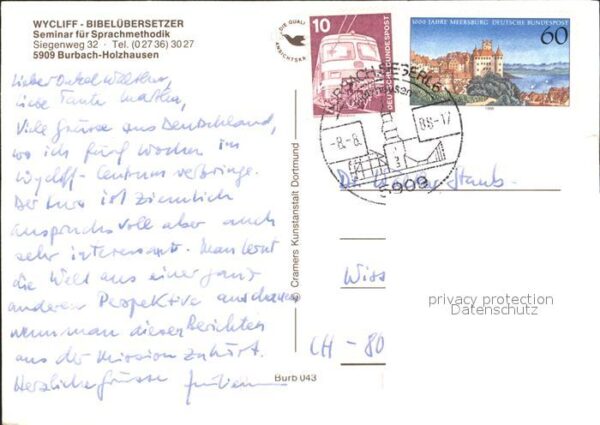 WYCLIFF - BIBELÜBERSETZER
Seminar für Sprachmethodik
Siegenweg 32 · Tel. (0 27 36) 30 27
5909 Burbach-Holzhausen
Lieber Onkel Walther,
liebe Tante Martha,
Viele Grüsse aus Deutschland,
wo ich fünf Wochen im
Wycliff-Centrum verbringe.
Der Kurs ist ziemlich
anspruchsvoll aber auch
sehr interessant. Man lernt
die Welt aus einer ganz
anderen Perspektive anschauen
wenn man diesen Berichten
aus der Mission zuhört.
Herzliche Grüsse
© Cramers Kunstanstalt Dortmund
Burb 043
DIE QUALI
ANSICHTSKA
10
DEUTSCHE BUNDESPOST
1000 JAHRE MEERSBURG DEUTSCHE BUNDESPOST
60
1988
-8.-8.
88-17
5909
Staub
Wiss
CH-80
privacy protection
Datenschutz